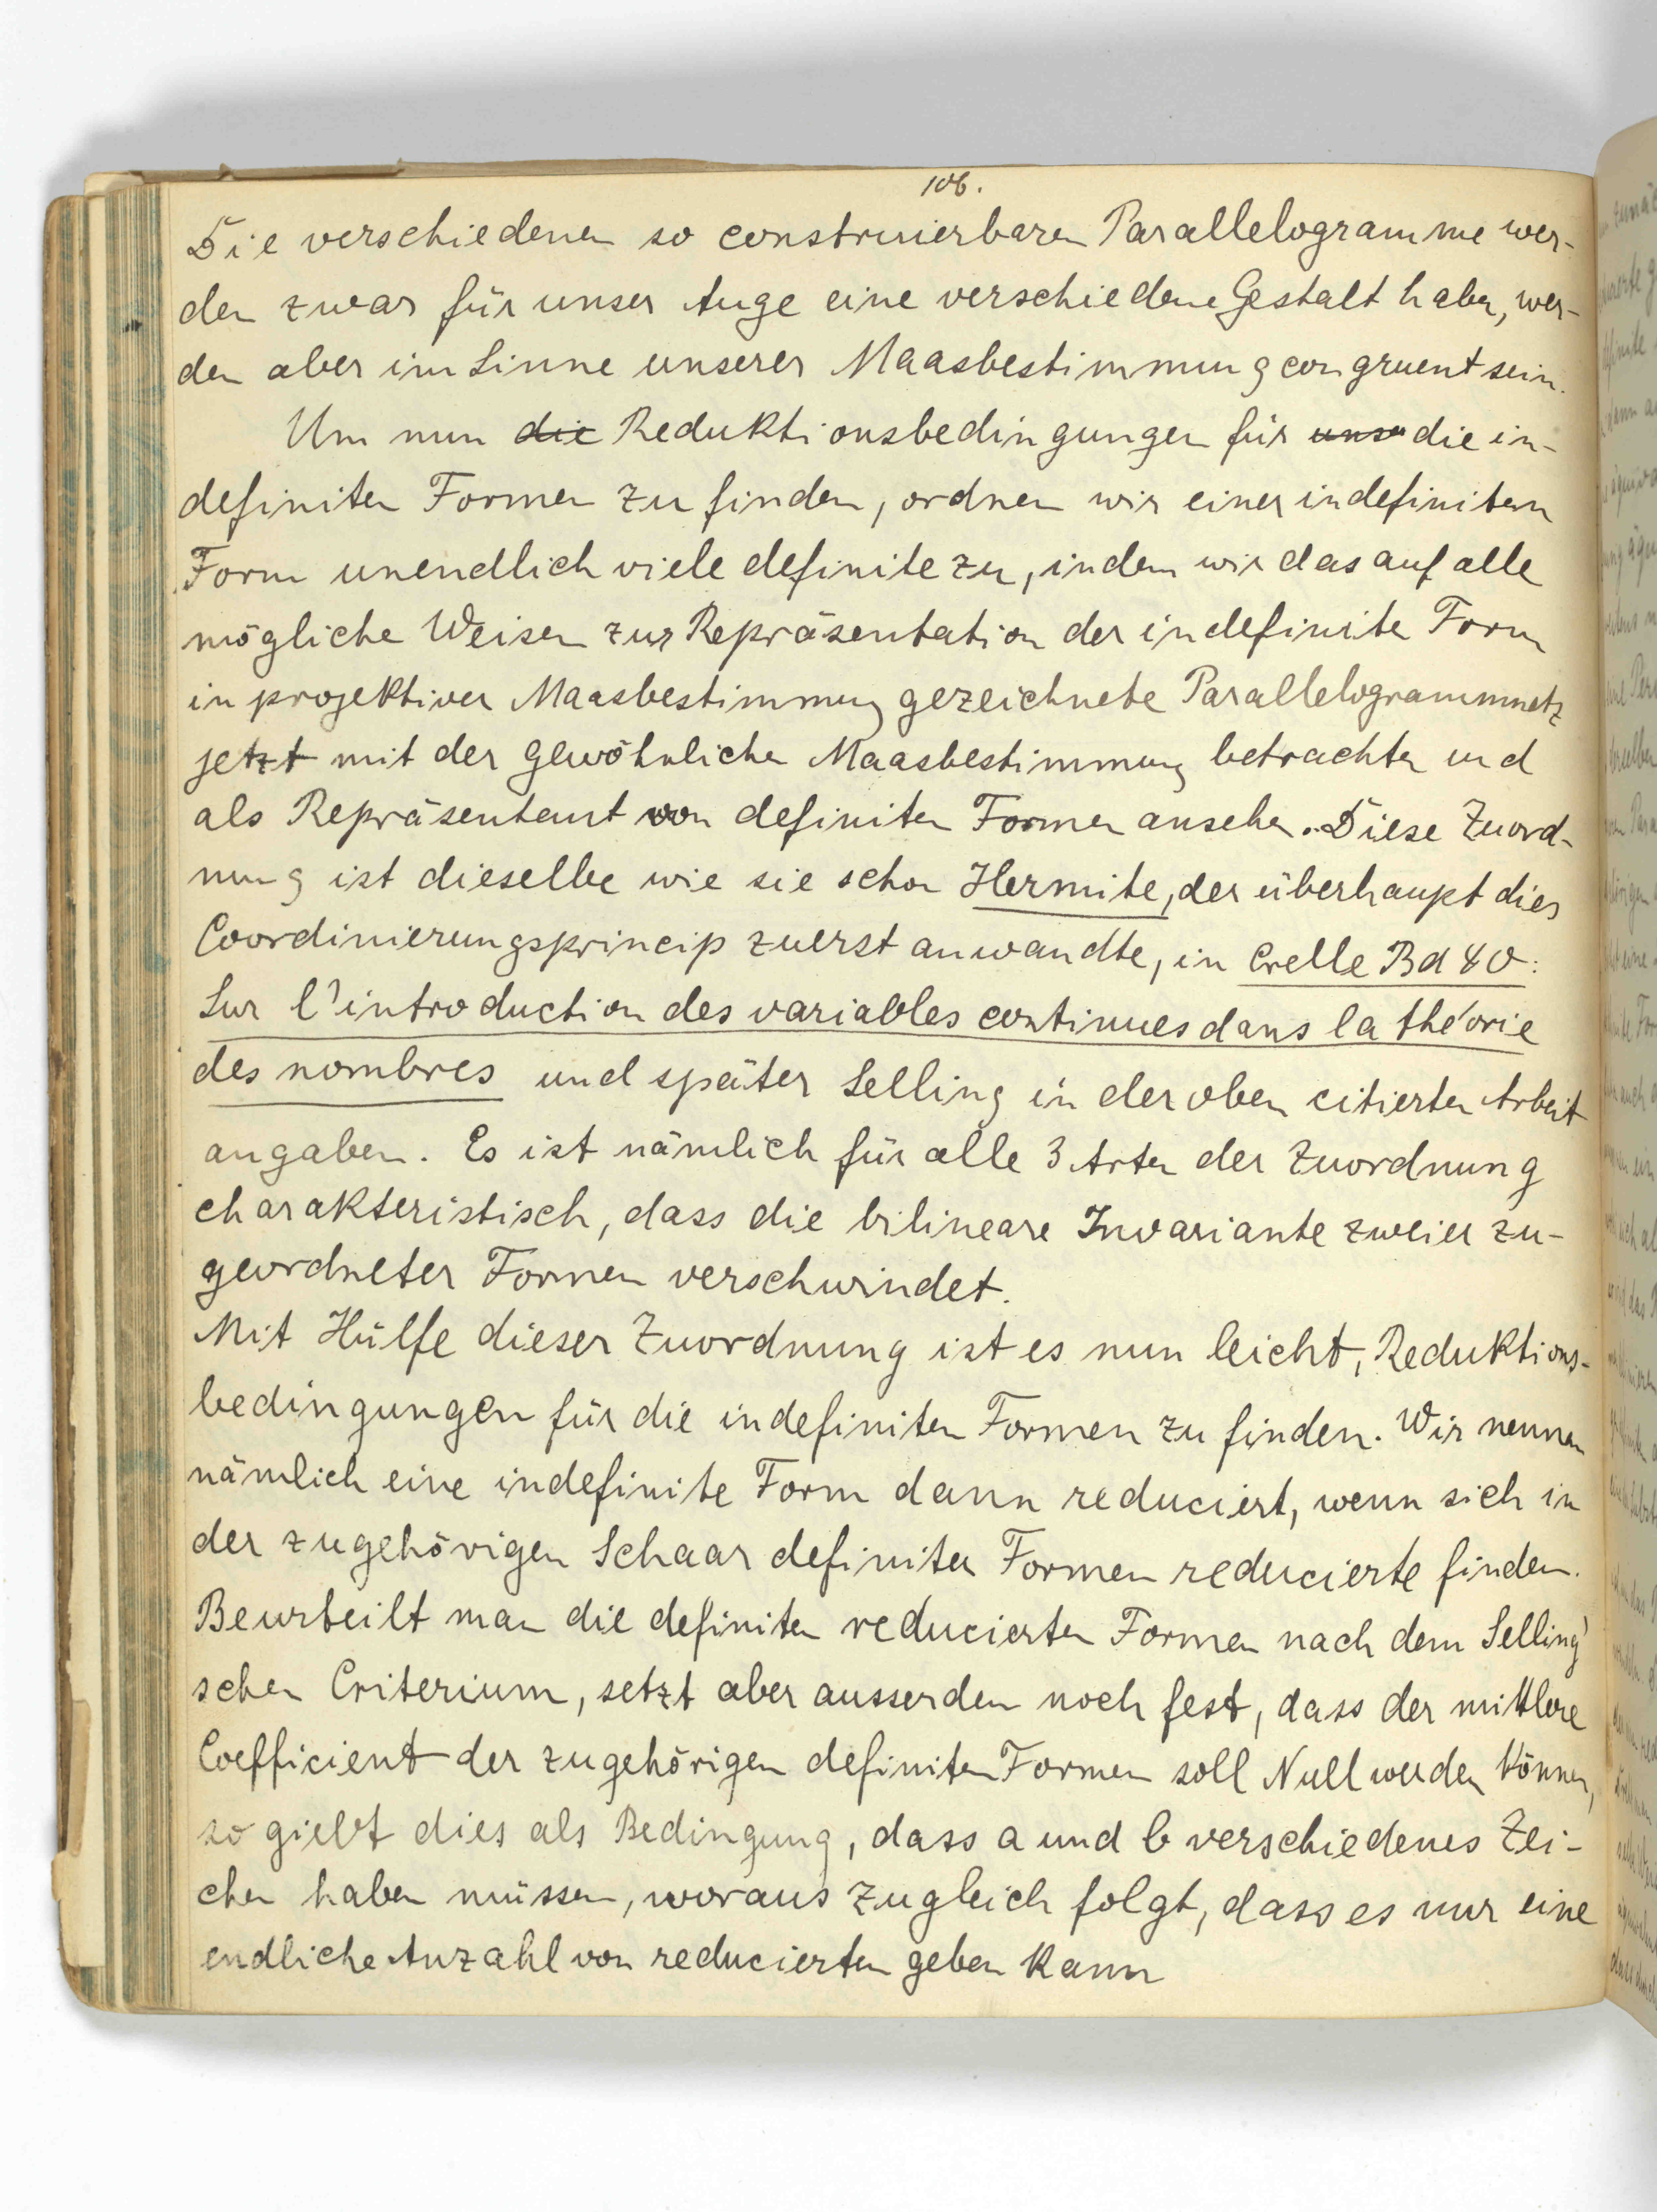 106.
Die verschiedenen so construierbaren Parallelogramme wer-
den zwar für unser Auge eine verschiedene Gestalt haben, wer-
den aber im Sinne unserer Maasbestimmung congruent sein.
Um nun die Reduktionsbedingungen für unse die in-
definiten Formen zu finden, ordnen wir einer indefiniten
Form unendlich viele definite zu, indem wir das auf alle
mögliche Weisen zur Repräsentation der indefiniten Form
in projektiver Maasbestimmung gezeichnete Parallelogrammnetz
jetzt mit der gewöhnlichen Maasbestimmung betrachten und
als Repräsentant von definiten Formen ansehen. Diese Zuord-
nung ist dieselbe wie sie schon Hermite, der überhaupt dies
Coordinierungsprincip zuerst anwandte, in Crelle Bd 40:
Sur l'introduction des variables continues dans la théorie
des nombres und später Selling in der oben citierten Arbeit
angaben. Es ist nämlich für alle 3 Arten der Zuordnung
charakteristisch, dass die bilineare Invariante zweier zu-
geordneter Formen verschwindet.
Mit Hülfe dieser Zuordnung ist es nun leicht, Reduktions-
bedingungen für die indefiniten Formen zu finden. Wir nennen
nämlich eine indefinite Form dann reduciert, wenn sich in
der zugehörigen Schaar definiter Formen reducierte finden.
Beurteilt man die definiten reducierten Formen nach dem Selling'
schen Criterium, setzt aber ausserdem noch fest, dass der mittlere
Coefficient der zugehörigen definiten Formen soll Null werden können,
so giebt dies als Bedingung, dass a und b verschiedenes Zei-
chen haben müssen, woraus zugleich folgt, dass es nur eine
endliche Anzahl von reducierten geben kann